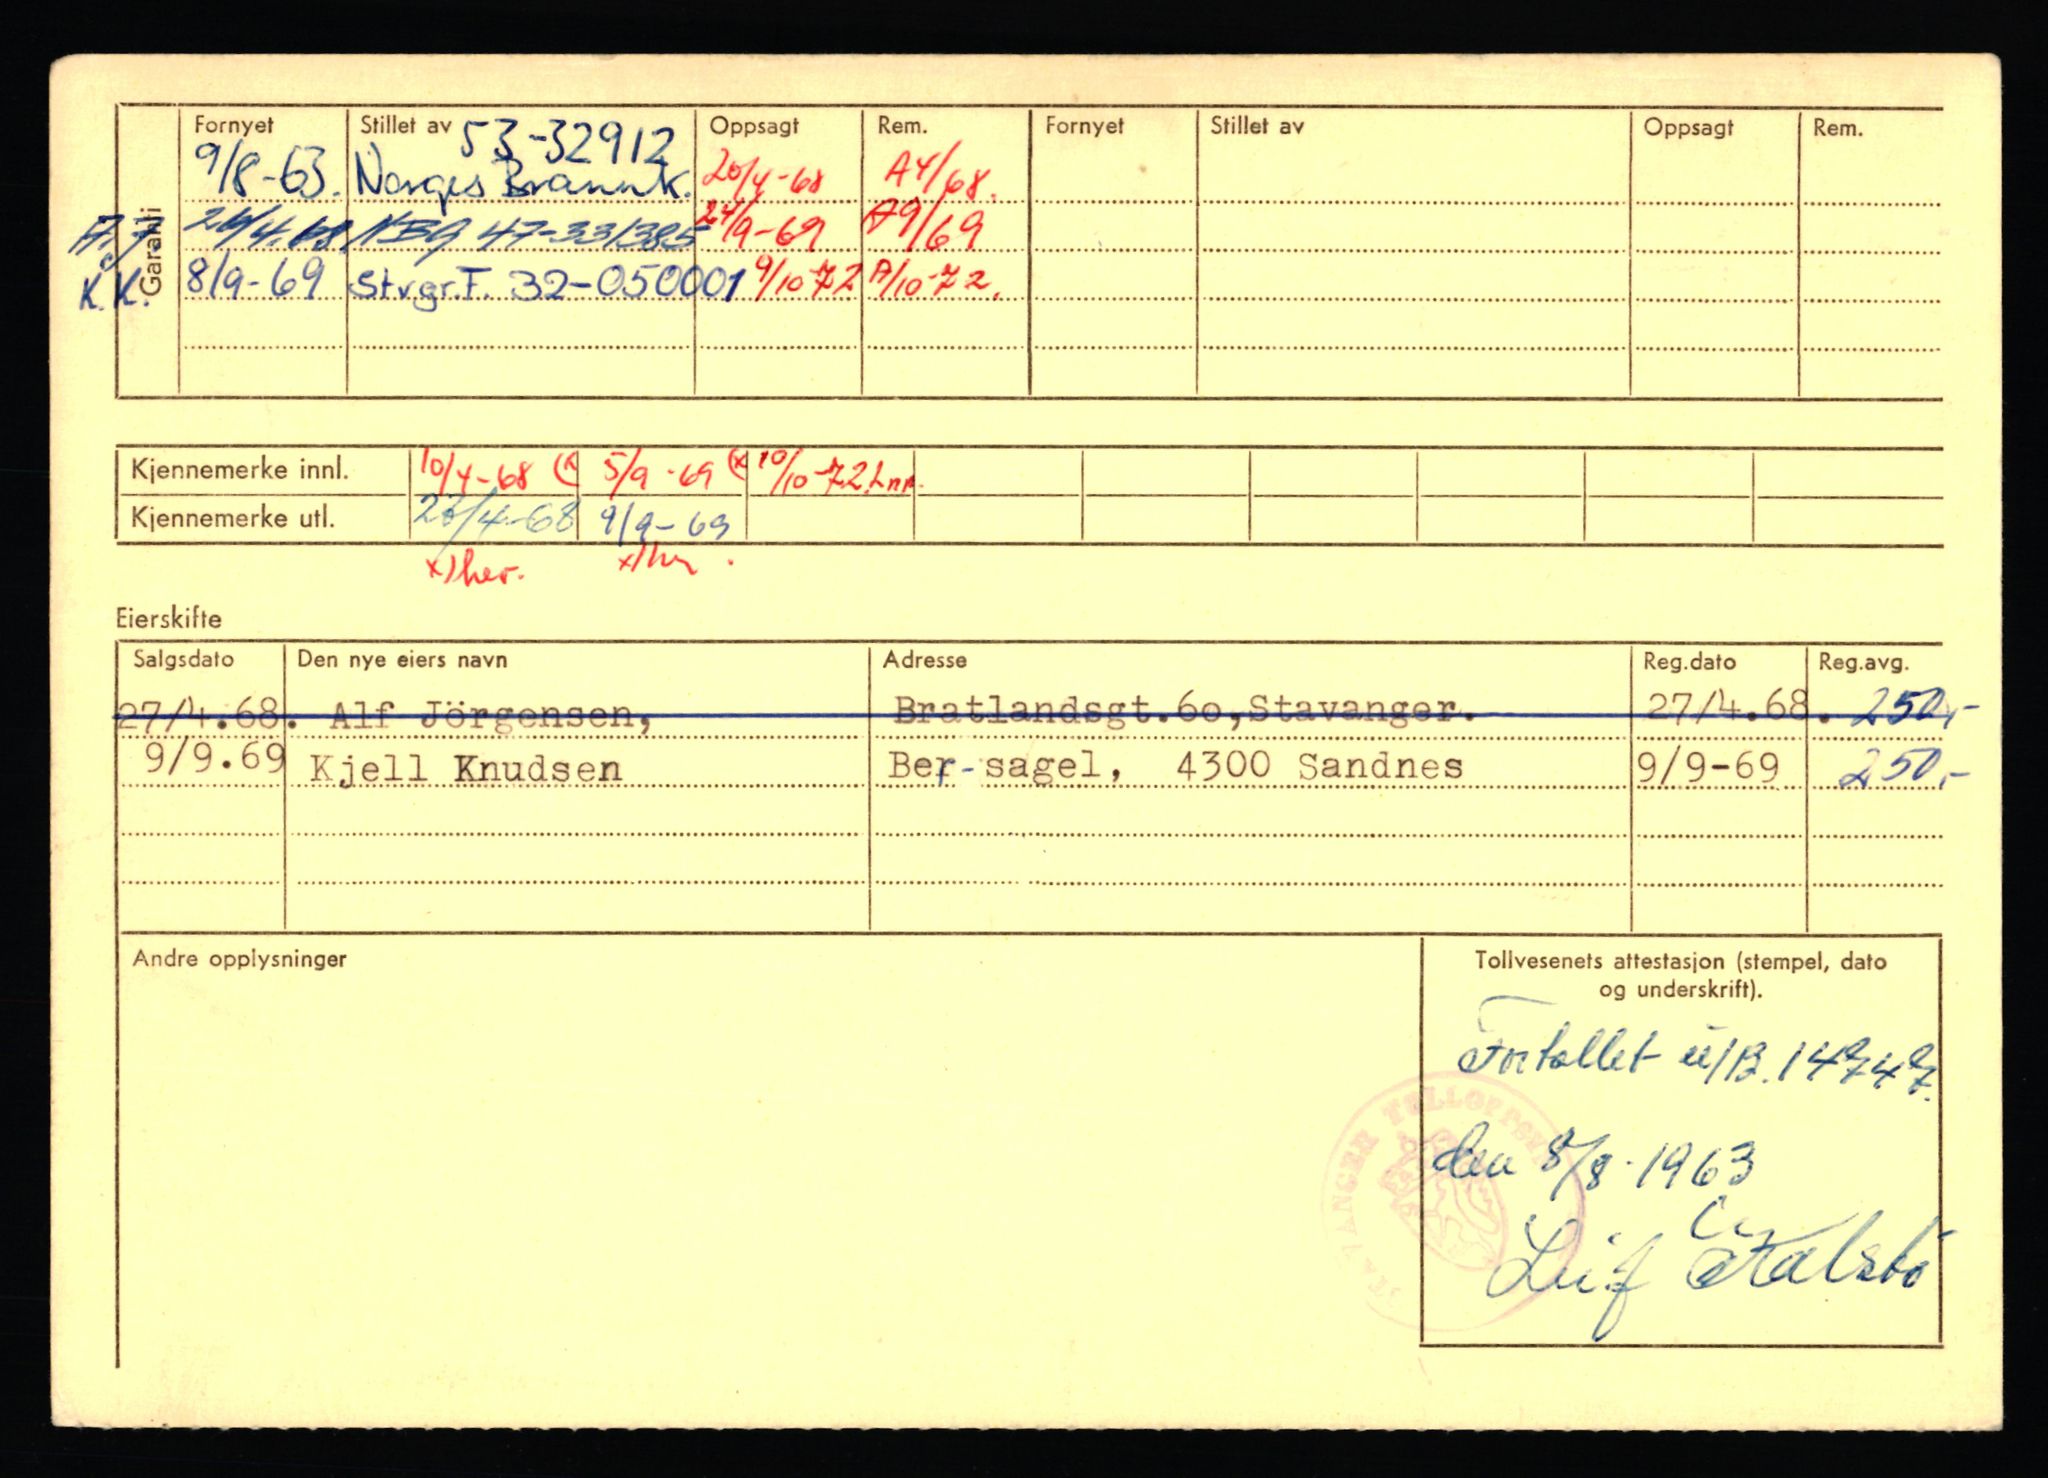 Garanti
Fornyet Stillet av 53-32912 Oppsagt Rem. Fornyet Stillet av Oppsagt Rem.
9/8-63. Norges Brannk. 20/4-68 A4/68.
A.J. 26/4.68 NBG 47-331385 24/9-69 A9/69
K.K. 8/9-69 Stvgr.F. 32-050001 9/10-72 A/10-72.
Kjennemerke innl. 10/4-68 (x 5/9-69 (x 10/10-72
Kjennemerke utl. 9/9-69
x) her. x) her.
Eierskifte
Salgsdato Den nye eiers navn Adresse Reg.dato Reg.avg.
27/4.68. Alf Jörgensen, Bratlandsgt.6o,Stavanger. 27/4.68. 250,-
9/9.69 Kjell Knudsen Ber- sagel, 4300 Sandnes 9/9-69 250,-
Andre opplysninger
Tollvesenets attestasjon (stempel, dato
og underskrift).
Fortollet u/B. 14747.
den 8/8-1963
Leif
STAVANGER